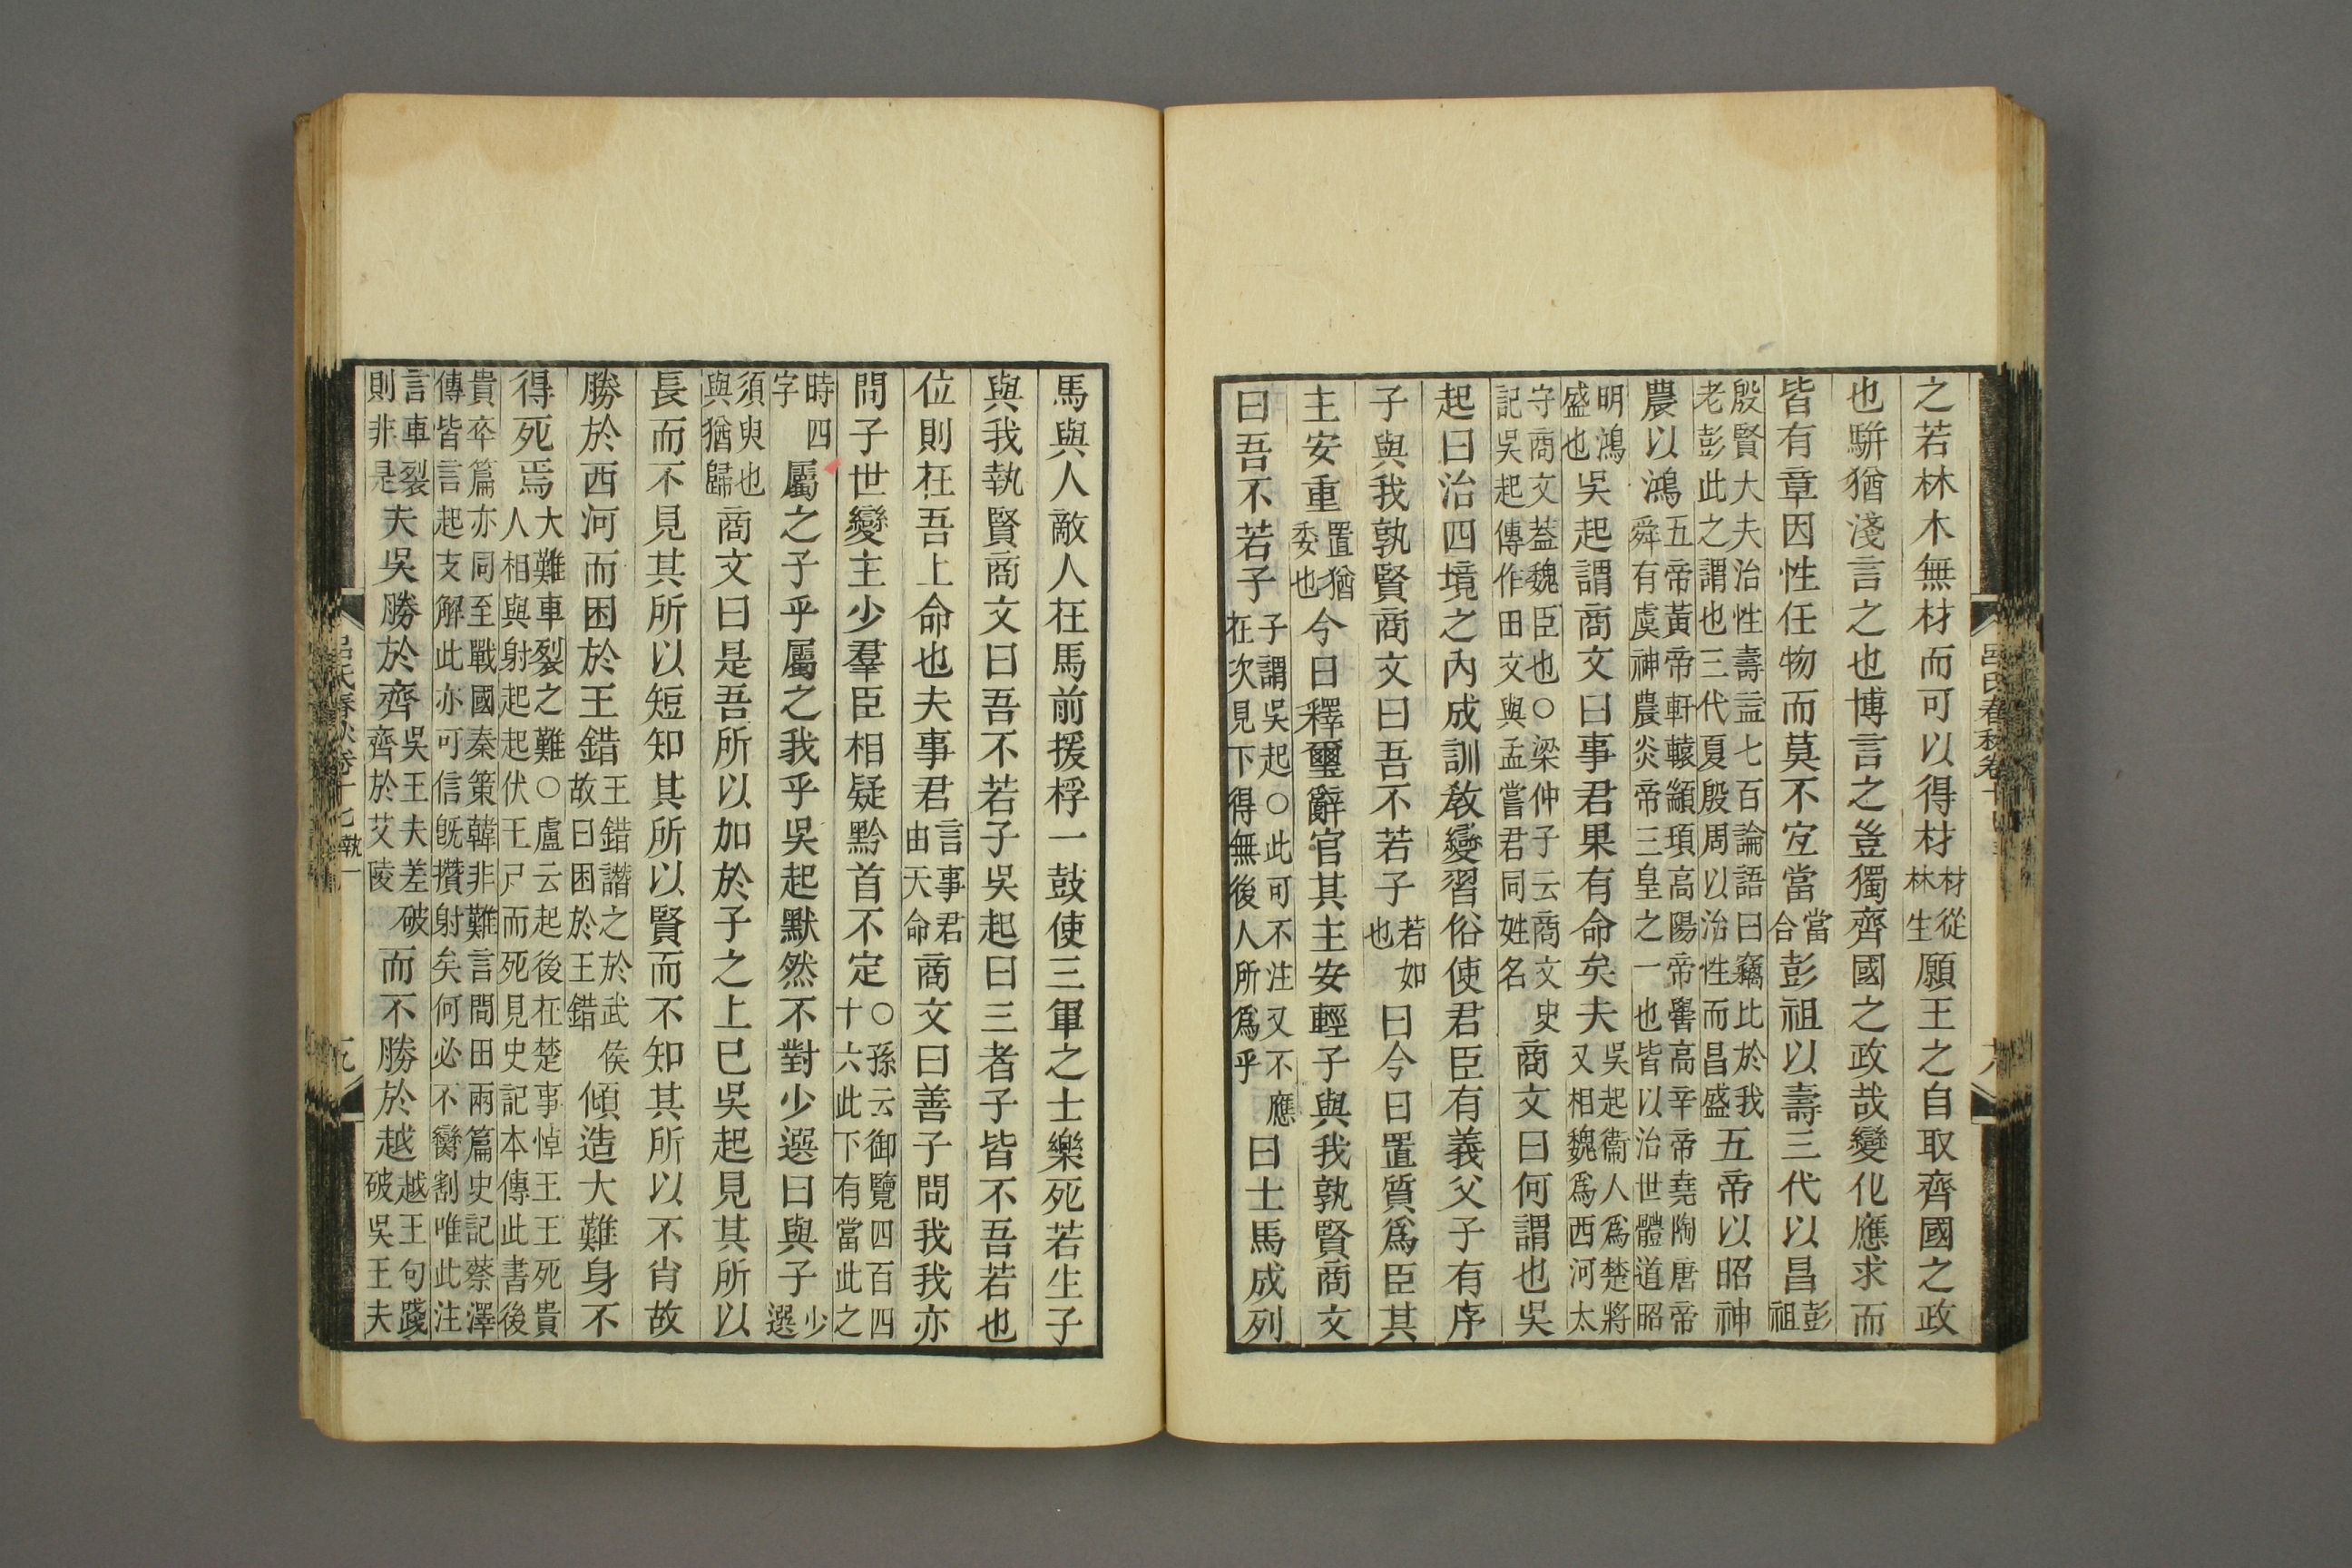 呂氏春秋卷十
之若林木無材而可以得材材從林生願王之自取齊國之政
也駢猶淺言之也博言之豈獨齊國之政哉變化應求而
皆有章因性任物而莫不宐當當合彭祖以壽三代以昌彭祖
殷賢大夫治性壽益七百論語曰竊比於我老彭此之謂也三代夏殷周以治性而昌盛五帝以昭神
農以鴻五帝黃帝軒轅顓頊高陽帝嚳高辛帝堯陶唐帝舜有虞神農炎帝三皇之一也皆以治世體道昭
明鴻盛也吳起謂商文曰事君果有命矣夫吳起衞人爲楚將又相魏爲西河太
守商文蓋魏臣也○梁仲子云商文史記吳起傳作田文與孟嘗君同姓名商文曰何謂也吳
起曰治四境之內成訓敎變習俗使君臣有義父子有序
子與我孰賢商文曰吾不若子若如也曰今日置質爲臣其
主安重置猶委也今日釋璽辭官其主安輕子與我孰賢商文
曰吾不若子子謂吳起○此可不注又不應在次見下得無後人所爲乎曰士馬成列
馬與人敵人在馬前援桴一鼓使三軍之士樂死若生子
與我孰賢商文曰吾不若子吳起曰三者子皆不吾若也
位則在吾上命也夫事君言事君由天命商文曰善子問我我亦
問子世變主少羣臣相疑黔首不定○孫云御覽四百四十六此下有當此之
時四字屬之子乎屬之我乎吳起默然不對少選曰與子少選
須臾也與猶歸商文曰是吾所以加於子之上已吳起見其所以
長而不見其所以短知其所以賢而不知其所以不肖故
勝於西河而困於王錯王錯譖之於武侯故曰困於王錯傾造大難身不
得死焉大難車裂之難○盧云起後在楚事悼王王死貴人相與射起起伏王尸而死見史記本傳此書後
貴卒篇亦同至戰國秦策韓非難言問田兩篇史記蔡澤傳皆言起支解此亦可信旣攢射矣何必不臠割唯此注
言車裂則非是夫吳勝於齊吳王夫差破齊於艾陵而不勝於越越王句踐破吳王夫
呂氏春秋卷十七執一